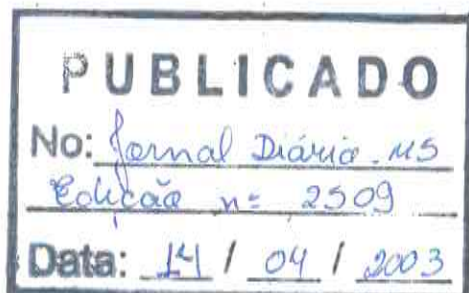 PUBLICADO
No: Jornal Diário MS
Edição nº 2509
Data: 14 / 04 / 2003